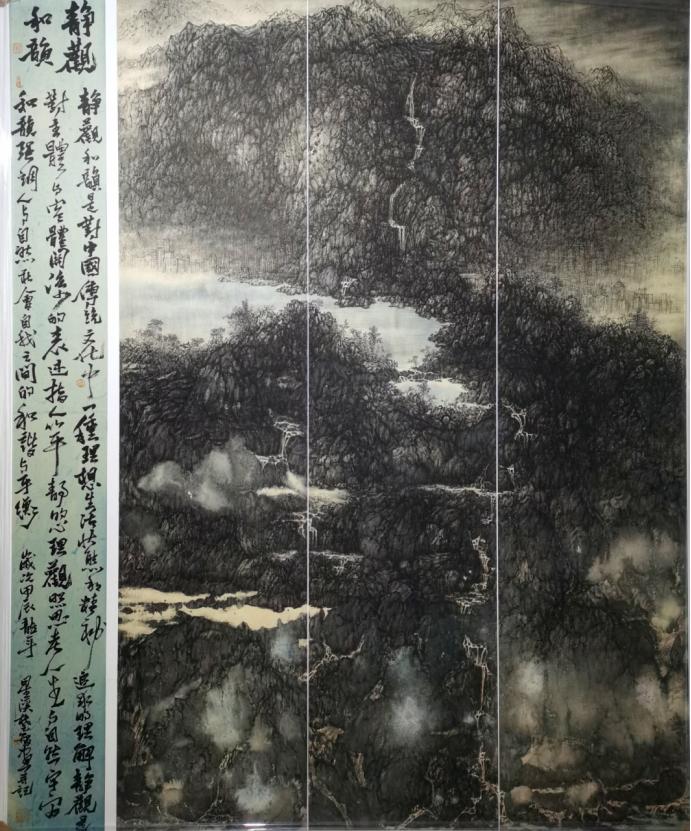 静觀
和韻
静觀和韻是對中國傳統文化中一種理想生活狀態和精神追求的理解静觀是
對主體與客體關係的表述指人以平靜的心理觀照思考人生與自然宇宙
和韻强調人與自然社會自我之間的和諧與平衡 歲次甲辰龍年